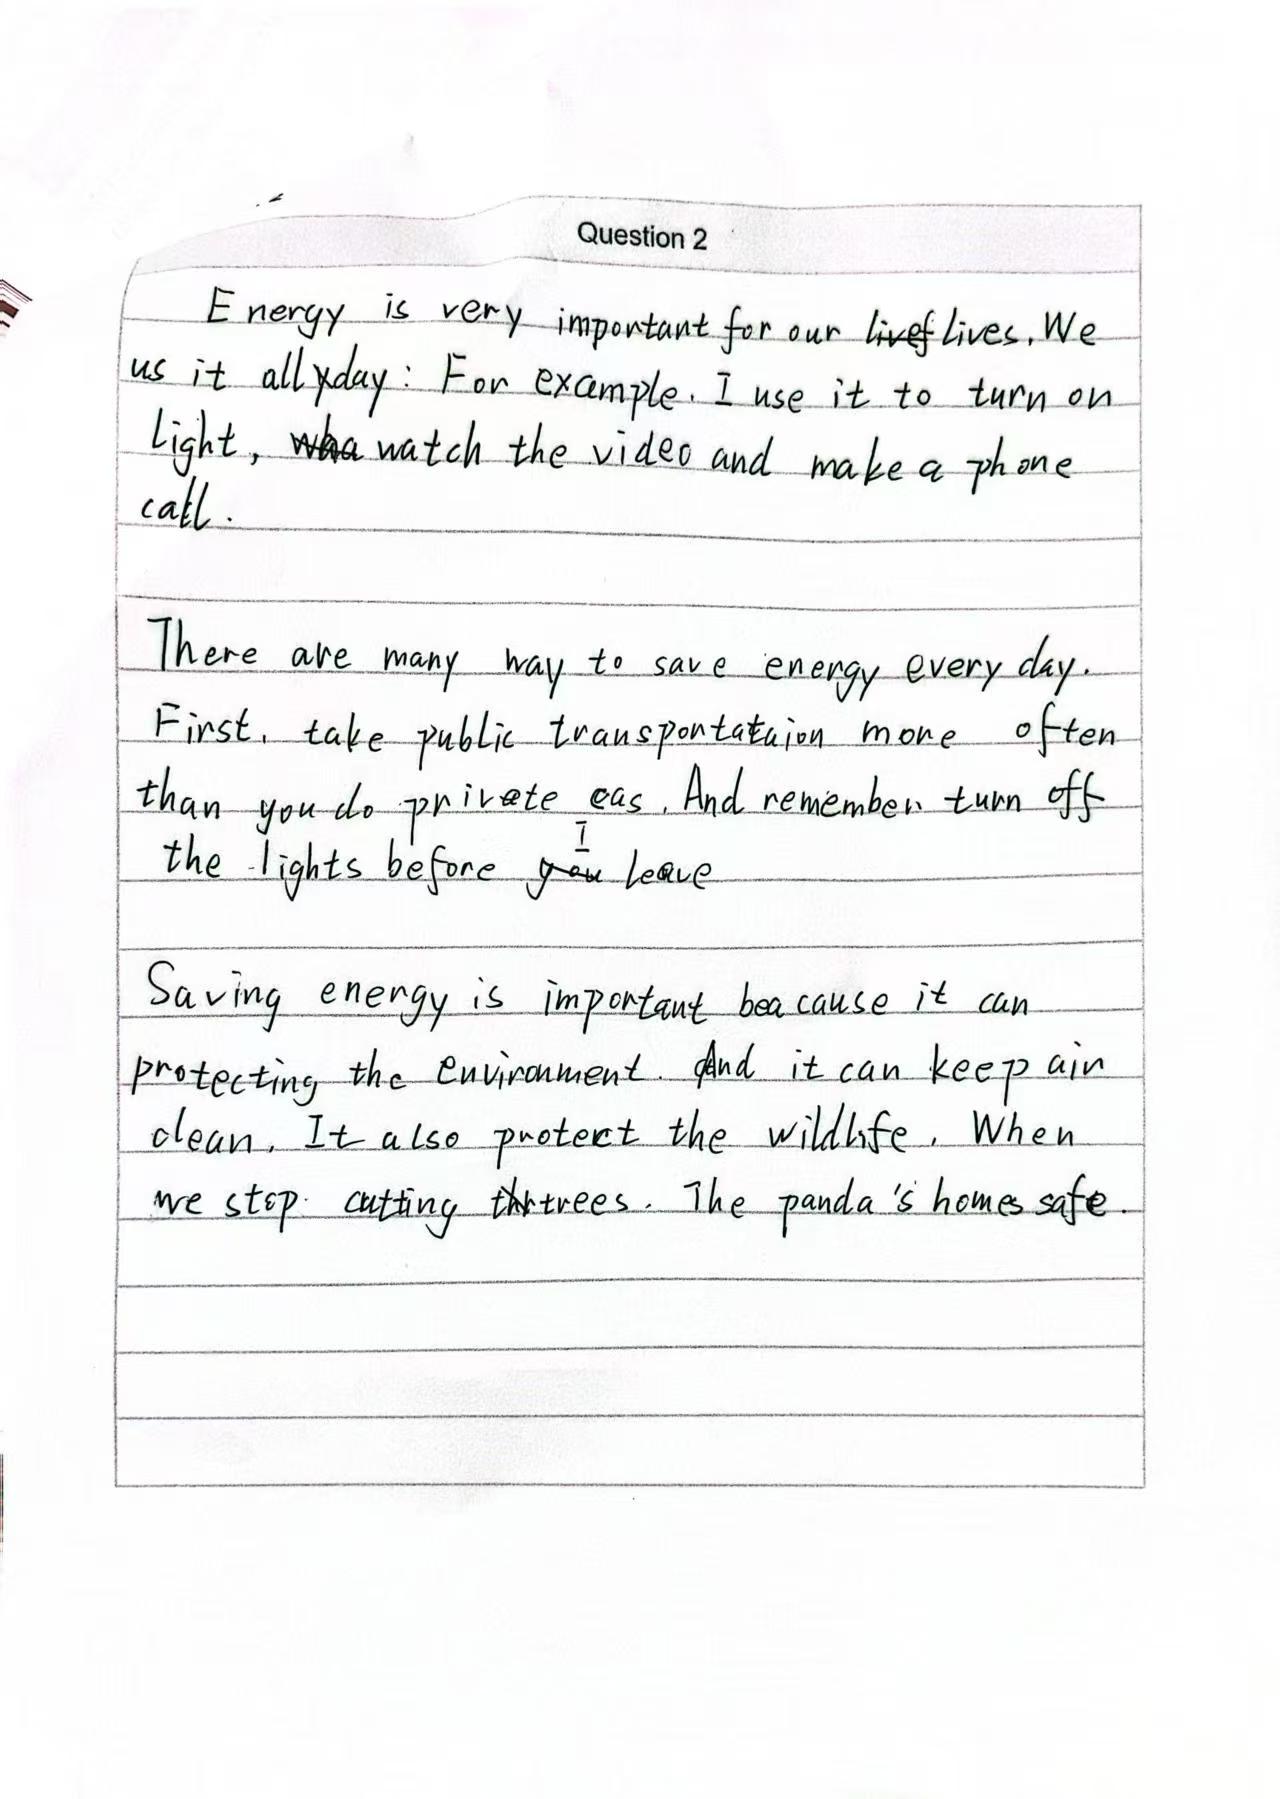 Question 2
Energy is very important for our lives. We
us it all day: For example. I use it to turn on
light, watch the video and make a phone
call.
There are many way to save energy every day.
First. take public transportataion more often
than you do private cas. And remember turn off
the lights before I leave
Saving energy is important beacause it can
protecting the environment. And it can keep air
clean. It also protect the wildlife. When
we stop cutting trees. The panda's homes safe.